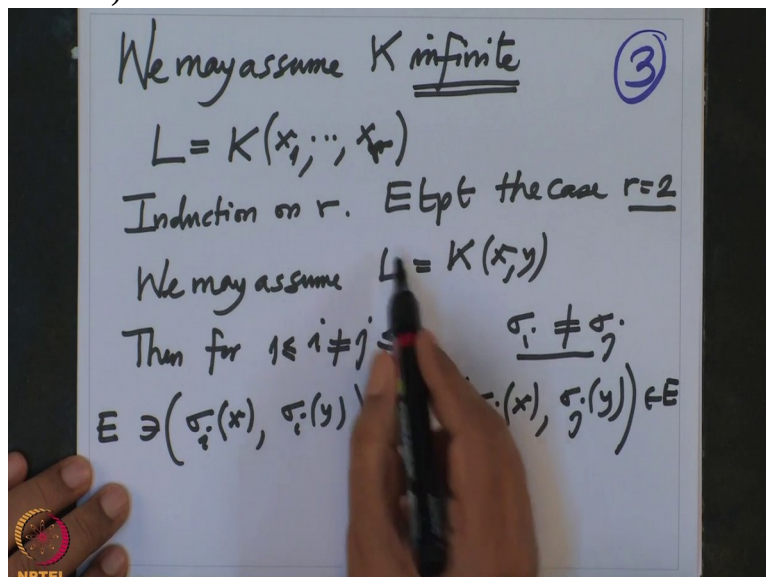 We may assume K infinite
3
L = K(x₁, ..., xᵣ)
Induction on r. Etpt the case r=2
We may assume L = K(x,y)
Then for 1≤ i ≠ j ≤ σᵢ ≠ σⱼ
E ∋ (σᵢ(x), σᵢ(y) (x), σⱼ(y)) ∈ E
NPTEL